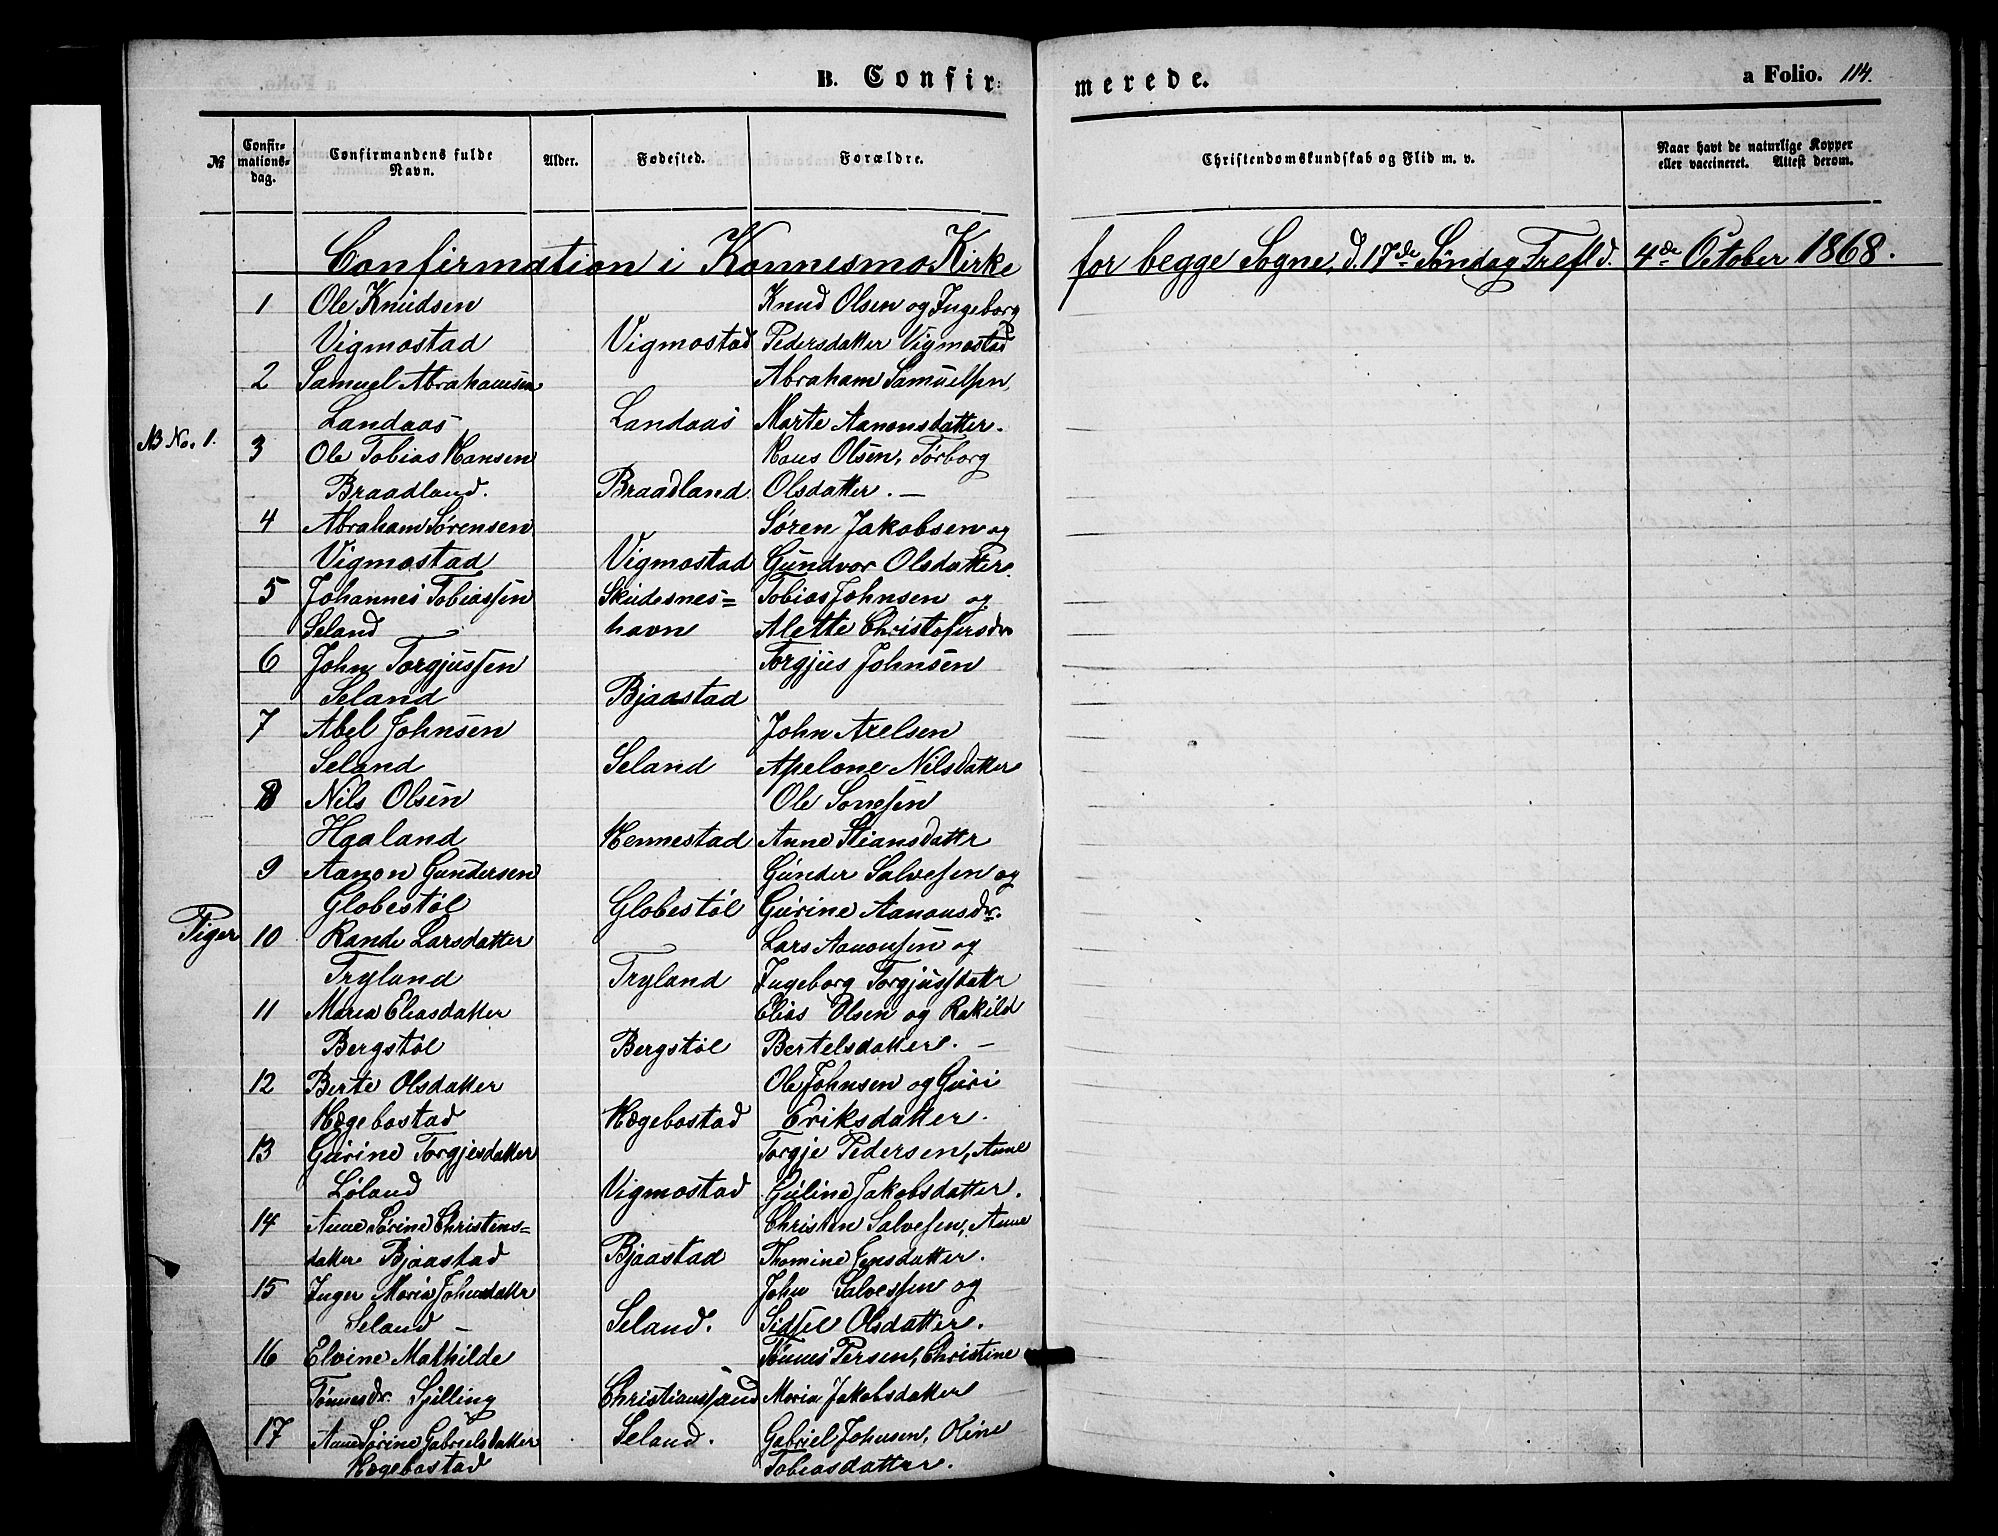 B. Confir= merede. a Folio. 114.
№ Confir-mations-dag. Confirmandens fulde Navn. Alder. Fødested. Forældre. Christendomskundskab og Flid m. v. Naar havt de naturlige Kopper eller vaccineret. Attest derom.
Confirmation i Konnesmo Kirke for begge Sogne, d. 17de Søndag Trefld. 4de October 1868.
1 Ole Knudsen Knud Olsen og Ingeborg
Vigmostad Vigmostad Pedersdatter Vigmostad
2 Samuel Abrahamsen Abraham Samuelsen,
Landaas Landaas Marte Aanonsdatter.
NB No. 1. 3 Ole Tobias Hansen Hans Olsen, Tørborg
Braadland. Braadland Olsdatter. —
4 Abraham Sørensen Søren Jakobsen og
Vigmostad Vigmostad Gundvor Olsdatter.
5 Johannes Tobiassen Skudesnes= Tobias Johnsen og
Seland havn Alette Christofersdr
6 John Torgjussen Torgjus Johnsen
Seland Bjaastad
7 Abel Johnsen John Axelsen
Seland Seland Apelone Nilsdatter
8 Nils Olsen Ole
Haaland Hennestad Anne Stiansdattr
9 Aanon Gundersen Gunder Salvesen og
Globestøl Globestøl Gurine Aanonsdr.
Piger 10 Rande Larsdatter Lars Aanonsen og
Tryland Tryland Ingeborg Torgjussdattr
11 Maren Eliasdatter Elias Olsen og Rakild
Bergstøl Bergstøl Bertelsdatter. —
12 Berte Olsdatter Ole Johnsen og Guri
Hægebostad Hægebostad Eriksdatter.
13 Gurine Torgjesdatter Torgje Pedersen, Anne
Løland Vigmostad Guline Jakobsdatter.
14 Anne Sørine Christens= Christen Salvesen, Anne
datter Bjaastad Bjaastad Thomine Jensdatter.
15 Inger Maria Johnsdattr John Salvessen og
Seland — Seland. Sidsel Olsdatter.
16 Elvine Mathilde Tønnes Persen, Christine
Tønnesdr. Spilling Christianssand Maria Jakobsdatter
17 Anne Sørine Gabrielsdatter Seland. Gabriel Johnsen, Oline
Hægebostad Tobiasdatter.